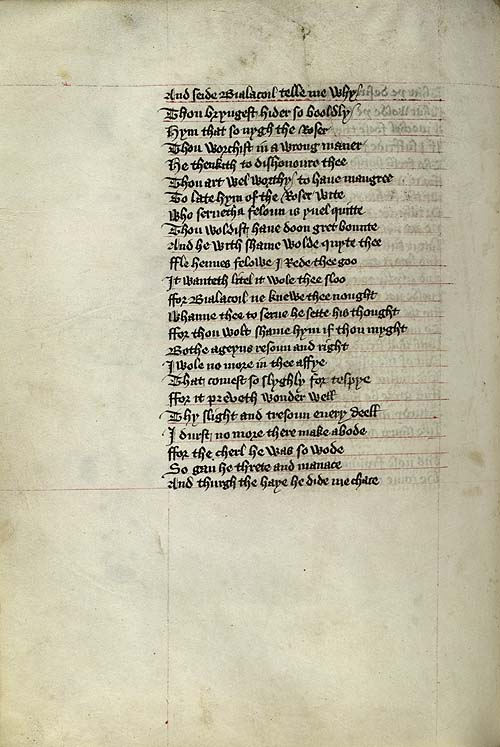 And seide Bialacoil telle me why
Thou bryngest hider so booldly
Hym that so nygh the Roser
Thou worchist in a wrong maner
He thenkith to dishonoure thee
Thou art wel worthy to haue maugree
To late hym of the Roser wite
Who serueth a feloun is yuel quitte
Thou woldist haue doon gret bounte
And he with shame wolde quyte thee
Fle hennes felowe I Rede thee goo
It wanteth litel it wole thee sloo
ffor Bialacoil ne knewe thee nought
Whanne thee to serue he sette his thought
ffor thou wolt shame hym if thou myght
Bothe ageyns resoun and right
I wole no more in thee affye
That comest so slyghly for tespye
ffor it preueth wonder well
Thy slight and tresoun euery deell
I durst no more there make abode
ffor the cherl he was so wode
So gan he threte and manace
And thurgh the haye he dide me chace